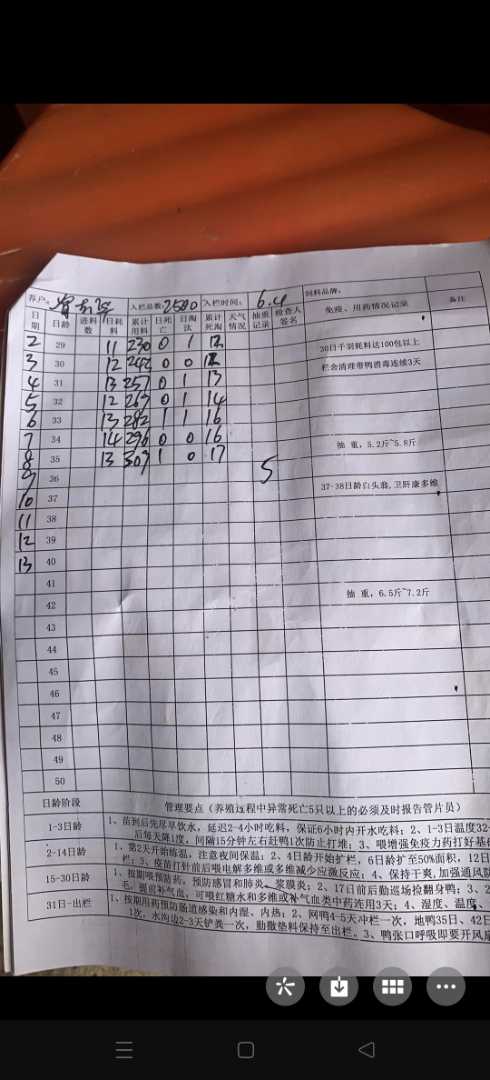 养户: 入栏总数: 2580 入栏时间: 6.4 饲料品牌:
日期 日龄 进料数 日耗料 累计用料 日死亡 日淘汰 累计死淘 天气情况 抽重记录 检查人签名 免疫、用药情况记录 备注
2 29 11 230 0 1 12
3 30 12 242 0 0 12 30日千羽耗料达100包以上
4 31 13 257 0 1 13 栏舍清理带鸭消毒连续3天
5 32 12 269 0 1 14
6 33 13 282 1 1 16
7 34 14 296 0 0 16
8 35 13 309 1 0 17 抽 重, 5.2斤~5.8斤
9 36 5
10 37 37-38日龄白头翁,卫肝康多维
11 38
12 39
13 40
41
42 抽 重, 6.5斤~7.2斤
43
44
45
46
47
48
49
50
日龄阶段 管理要点（养殖过程中异常死亡5只以上的必须及时报告管片员）
1-3日龄 1、苗到后先尽早饮水, 延迟2-4小时吃料, 保证6小时内开水吃料; 2、1-3日温度32-
后每天降1度, 间隔15分钟左右赶鸭1次防止打堆; 3、喂增强免疫力药打好基
2-14日龄 1、第2天开始练温, 注意夜间保温; 2、4日龄开始扩栏, 6日龄扩至50%面积, 12日
栏; 3、疫苗打针前后喂电解多维或多维减少应激反应; 4、保持干爽,加强通风
15-30日龄 1、按期喂预防药, 预防感冒和肺炎、浆膜炎; 2、17日前后勤巡场捡翻身鸭; 3、2
可喂红糖水和多维或补气血类中药连用3天; 4、湿度、温度、
31日-出栏 1、按期用药预防肠道感染和内湿、内热; 2、网鸭4-5天冲栏一次, 地鸭35日、42日
1次, 水沟边2-3天铲粪一次, 勤散垫料保持至出栏。3、鸭张口呼吸即要开风